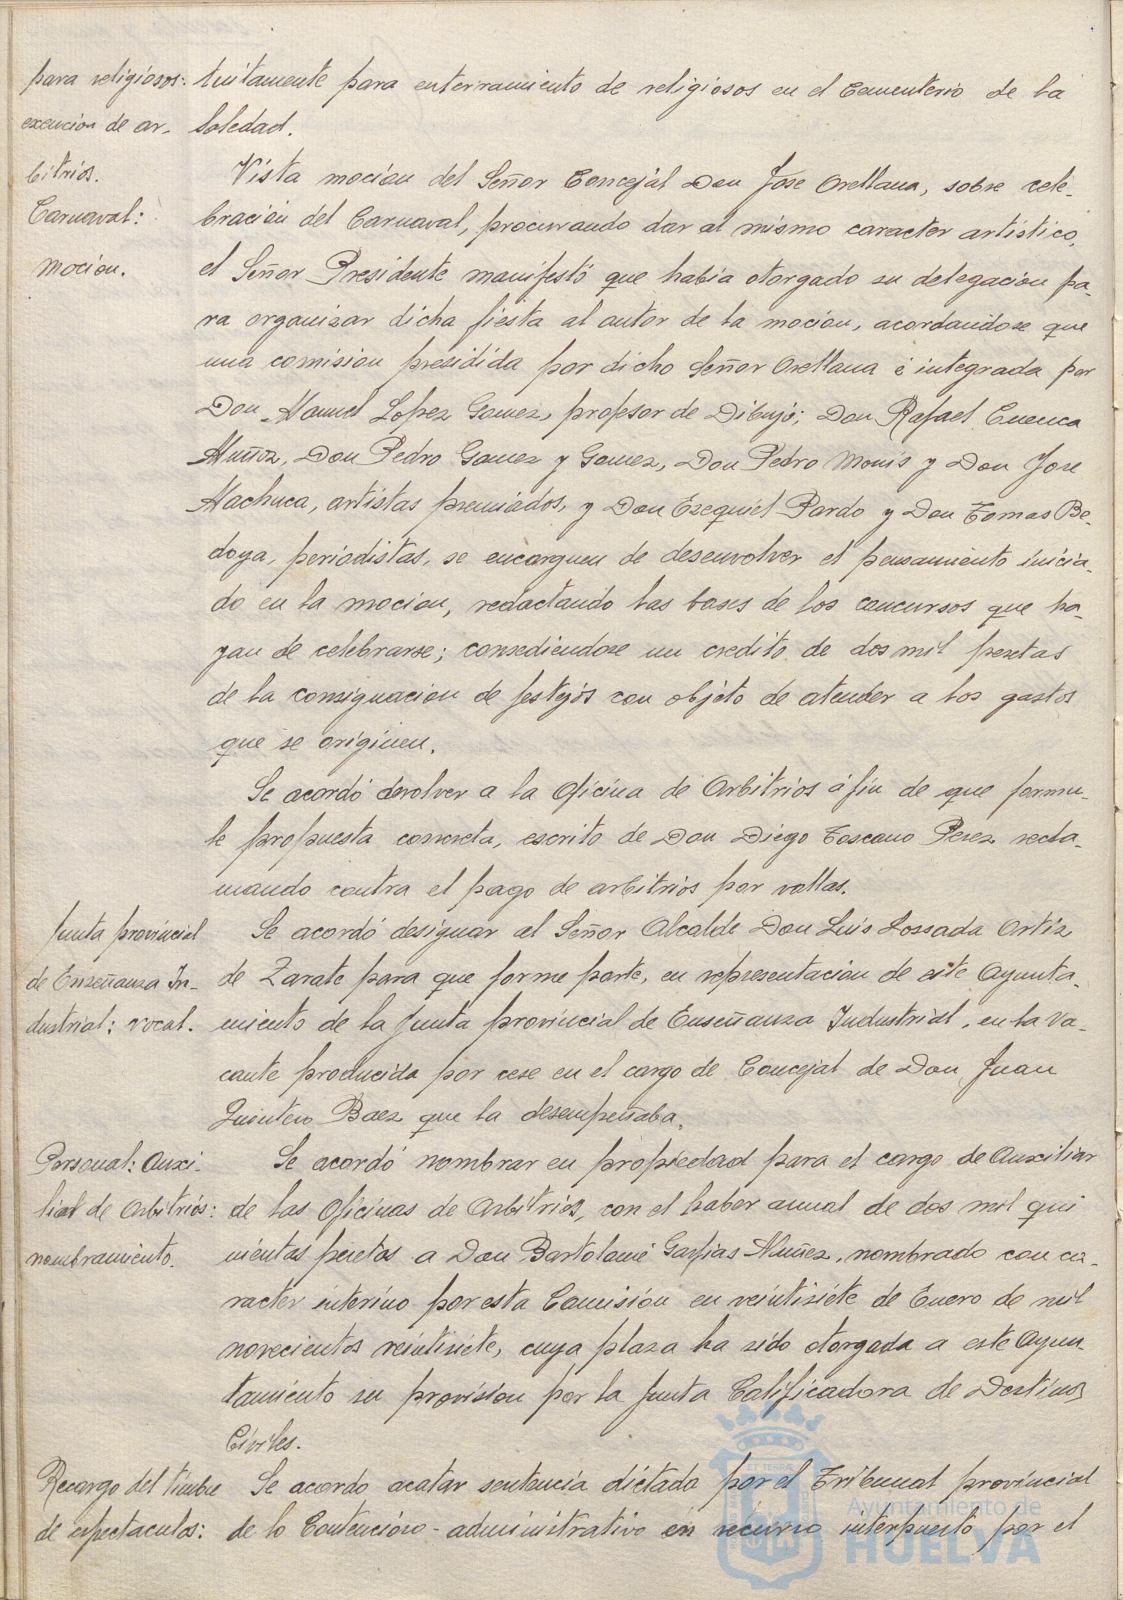 para religiosos: tuitamente para enterramiento de religiosos en el Cementerio de la
exención de ar- Soledad.
bitrios. Vista mocion del Señor Concejal Don Jose Orellana, sobre cele-
Carnaval: bración del Carnaval, procurando dar al mismo caracter artistico,
mocion. el Señor Presidente manifestó que habia otorgado su delegacion pa-
ra organizar dicha fiesta al autor de la mocion, acordandose que
una comision presidida por dicho Señor Orellana é integrada por
Don Manuel Lopez Gomez, profesor de Dibujo; Don Rafael Cuenca
Muñoz, Don Pedro Gomez y Gomez, Don Pedro Monis y Don Jose
Machuca, artistas premiados, y Don Ezequiel Pardo y Don Tomas Be-
doya, periodistas, se encarguen de desenvolver el pensamiento inicia-
do en la mocion, redactando las bases de los concursos que ha-
yan de celebrarse; consediendose un credito de dos mil pesetas
de la consignacion de festejos con objeto de atender a los gastos
que se originen.
Se acordó devolver a la Oficina de Arbitrios á fin de que formu-
le propuesta concreta, escrito de Don Diego Toscano Perez recla-
mando contra el pago de arbitrios por vallas.
Junta provincial Se acordó designar al Señor Alcalde Don Luis Lossada Ortiz
de Enseñanza In- de Zarate para que forme parte, en representacion de este Ayunta-
dustrial: vocal. miento de la Junta provincial de Enseñanza Industrial, en la va-
cante producida por cese en el cargo de Concejal de Don Juan
Quintero Baez que la desempeñaba.
Personal: Auxi- Se acordó nombrar en propiedad para el cargo de Auxiliar
liar de Arbitrios: de las Oficinas de Arbitrios, con el haber anual de dos mil qui
nombramiento. nientas pesetas a Don Bartolomé Garfias Nuñez, nombrado con ca-
racter interino por esta Comisión en veintisiete de Enero de mil
novecientos veintisiete, cuya plaza ha sido otorgada a este Ayun-
tamiento su provision por la Junta Calificadora de Destinos
Civiles.
Recargo del timbre Se acordo acatar sentencia dictada por el Tribunal provincial
de espectaculos: de lo Contencioso-administrativo en recurso interpuesto por el
Ayuntamiento de
HUELVA